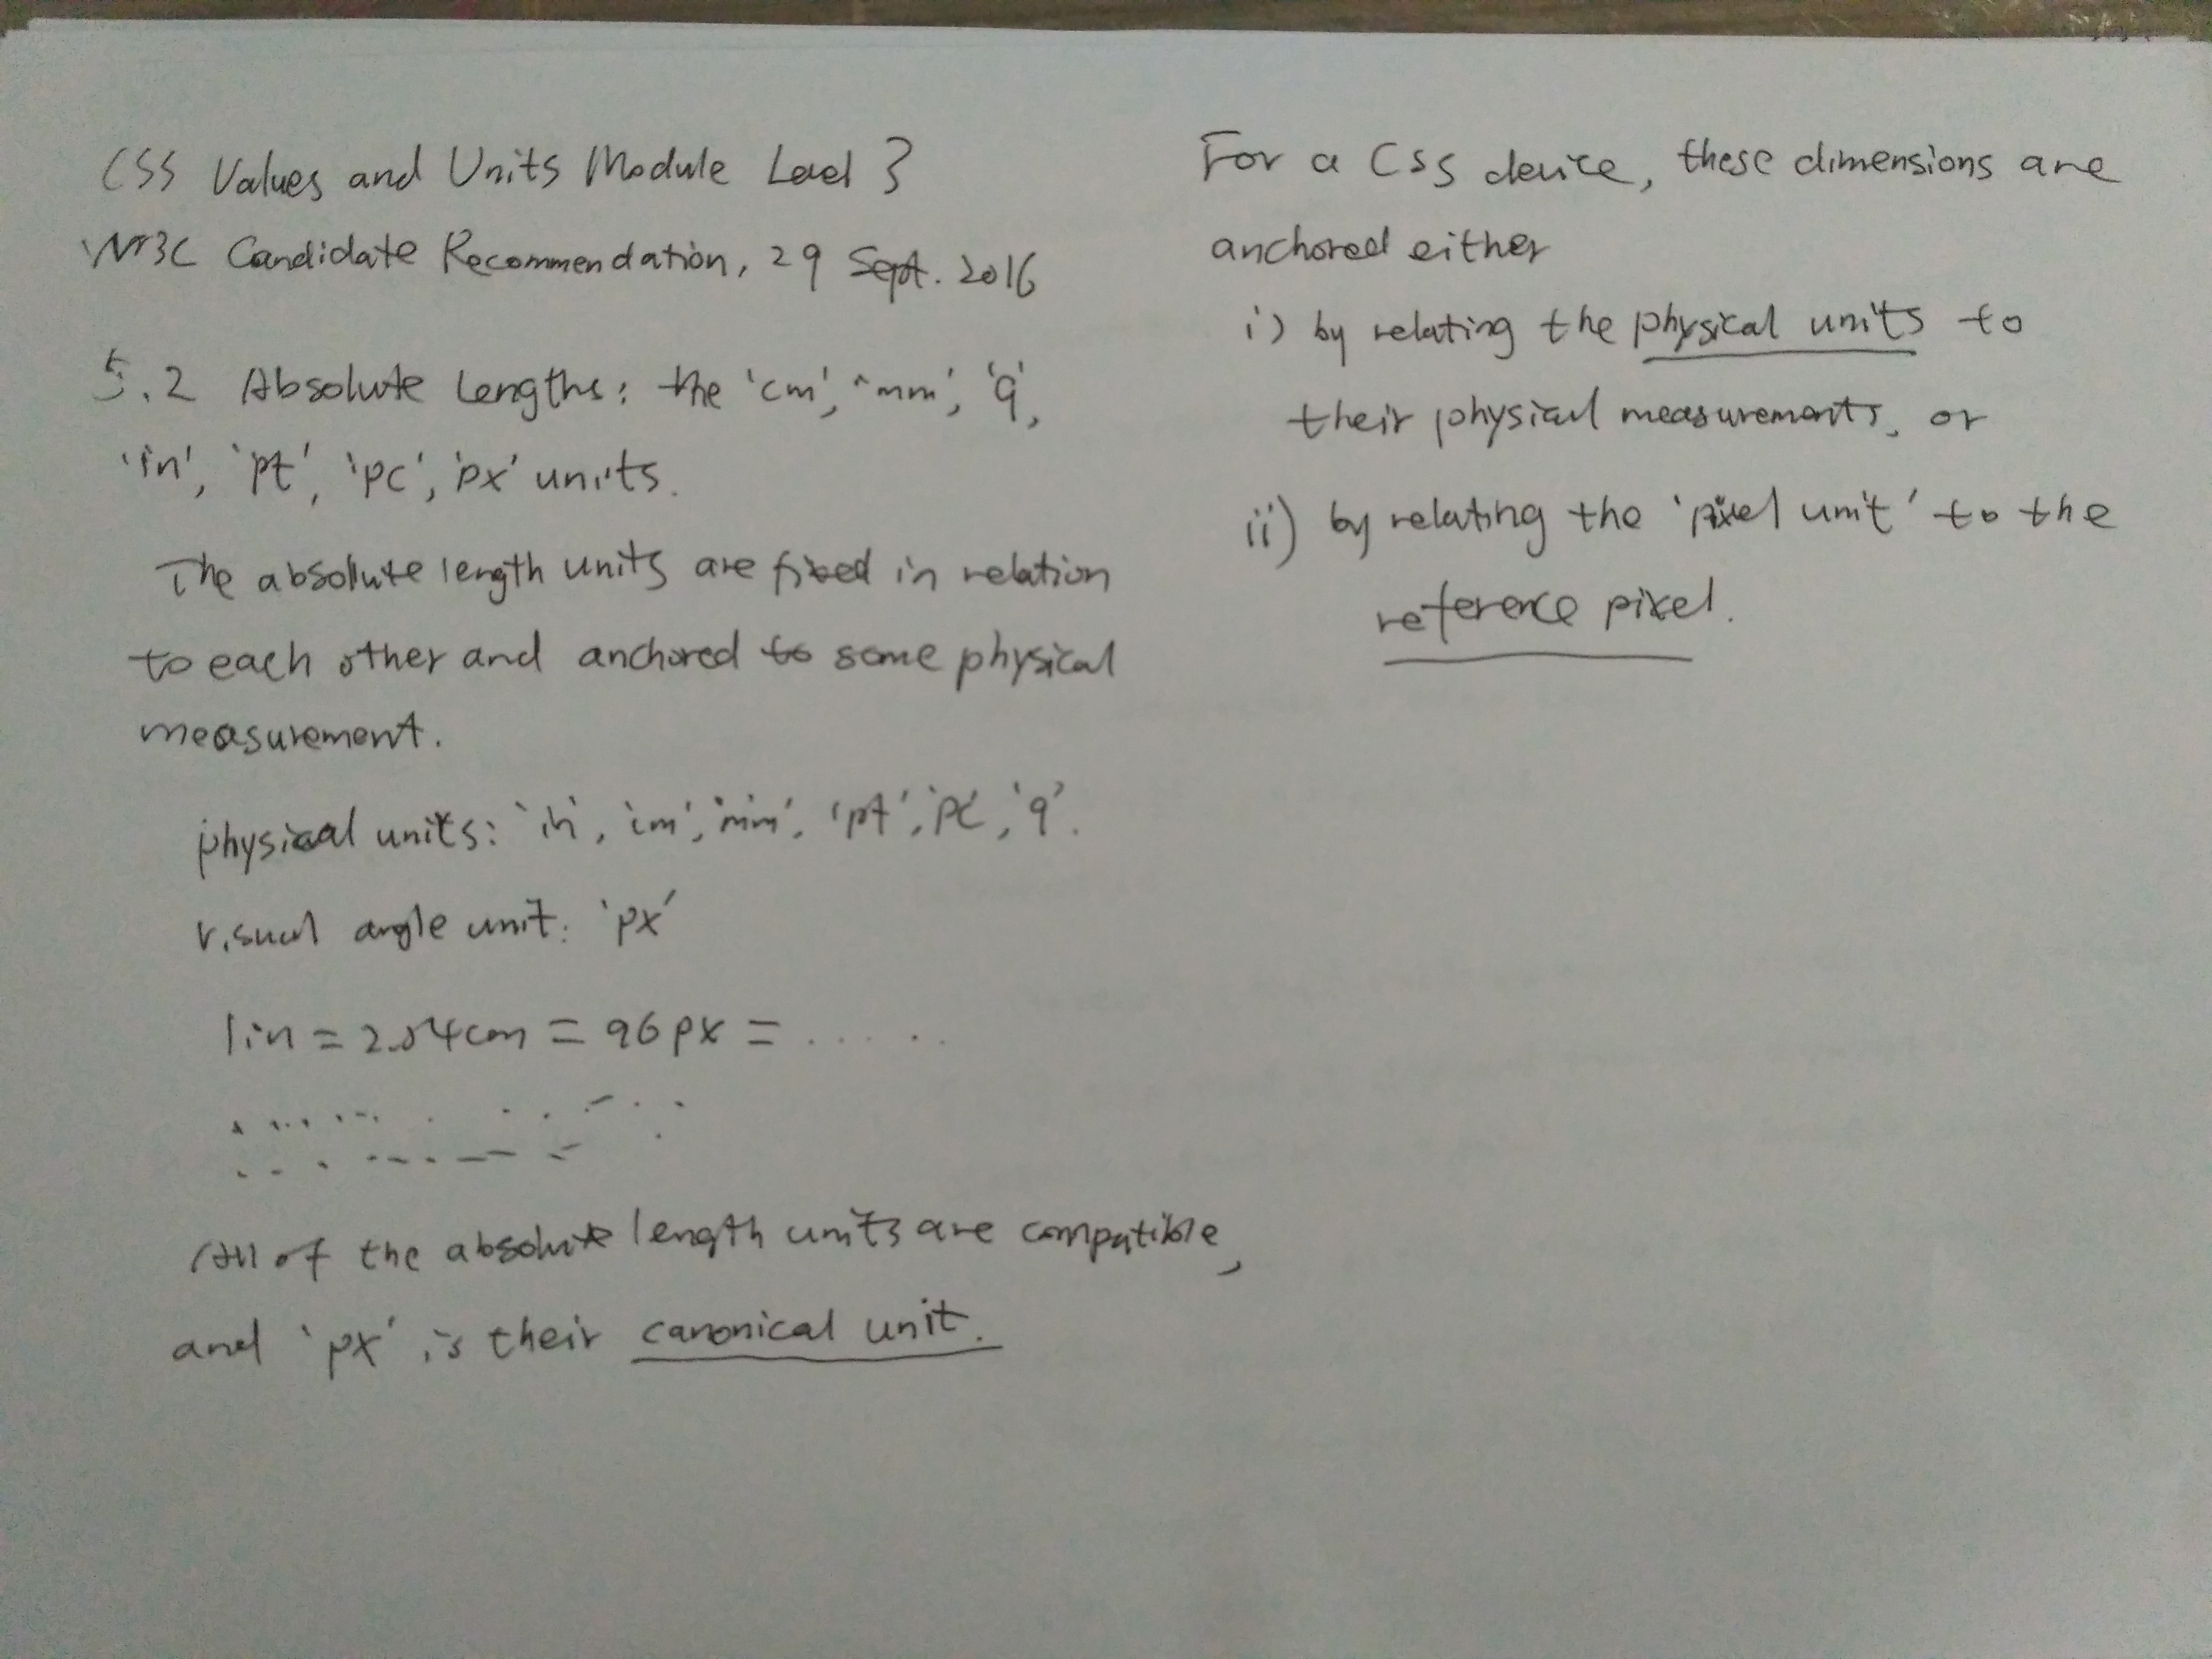 CSS Values and Units Module Level 3
W3C Candidate Recommendation, 29 Sept. 2016
5.2 Absolute Lengths: the 'cm', 'mm', 'q',
'in', 'pt', 'pc', 'px' units.
The absolute length units are fixed in relation
to each other and anchored to some physical
measurement.
physical units: 'in', 'cm', 'mm', 'pt', 'pc', 'q'.
visual angle unit: 'px'
1in = 2.54cm = 96px = ......
All of the absolute length units are compatible,
and 'px' is their canonical unit.
For a CSS device, these dimensions are
anchored either
i) by relating the physical units to
their physical measurements, or
ii) by relating the 'pixel unit' to the
reference pixel.